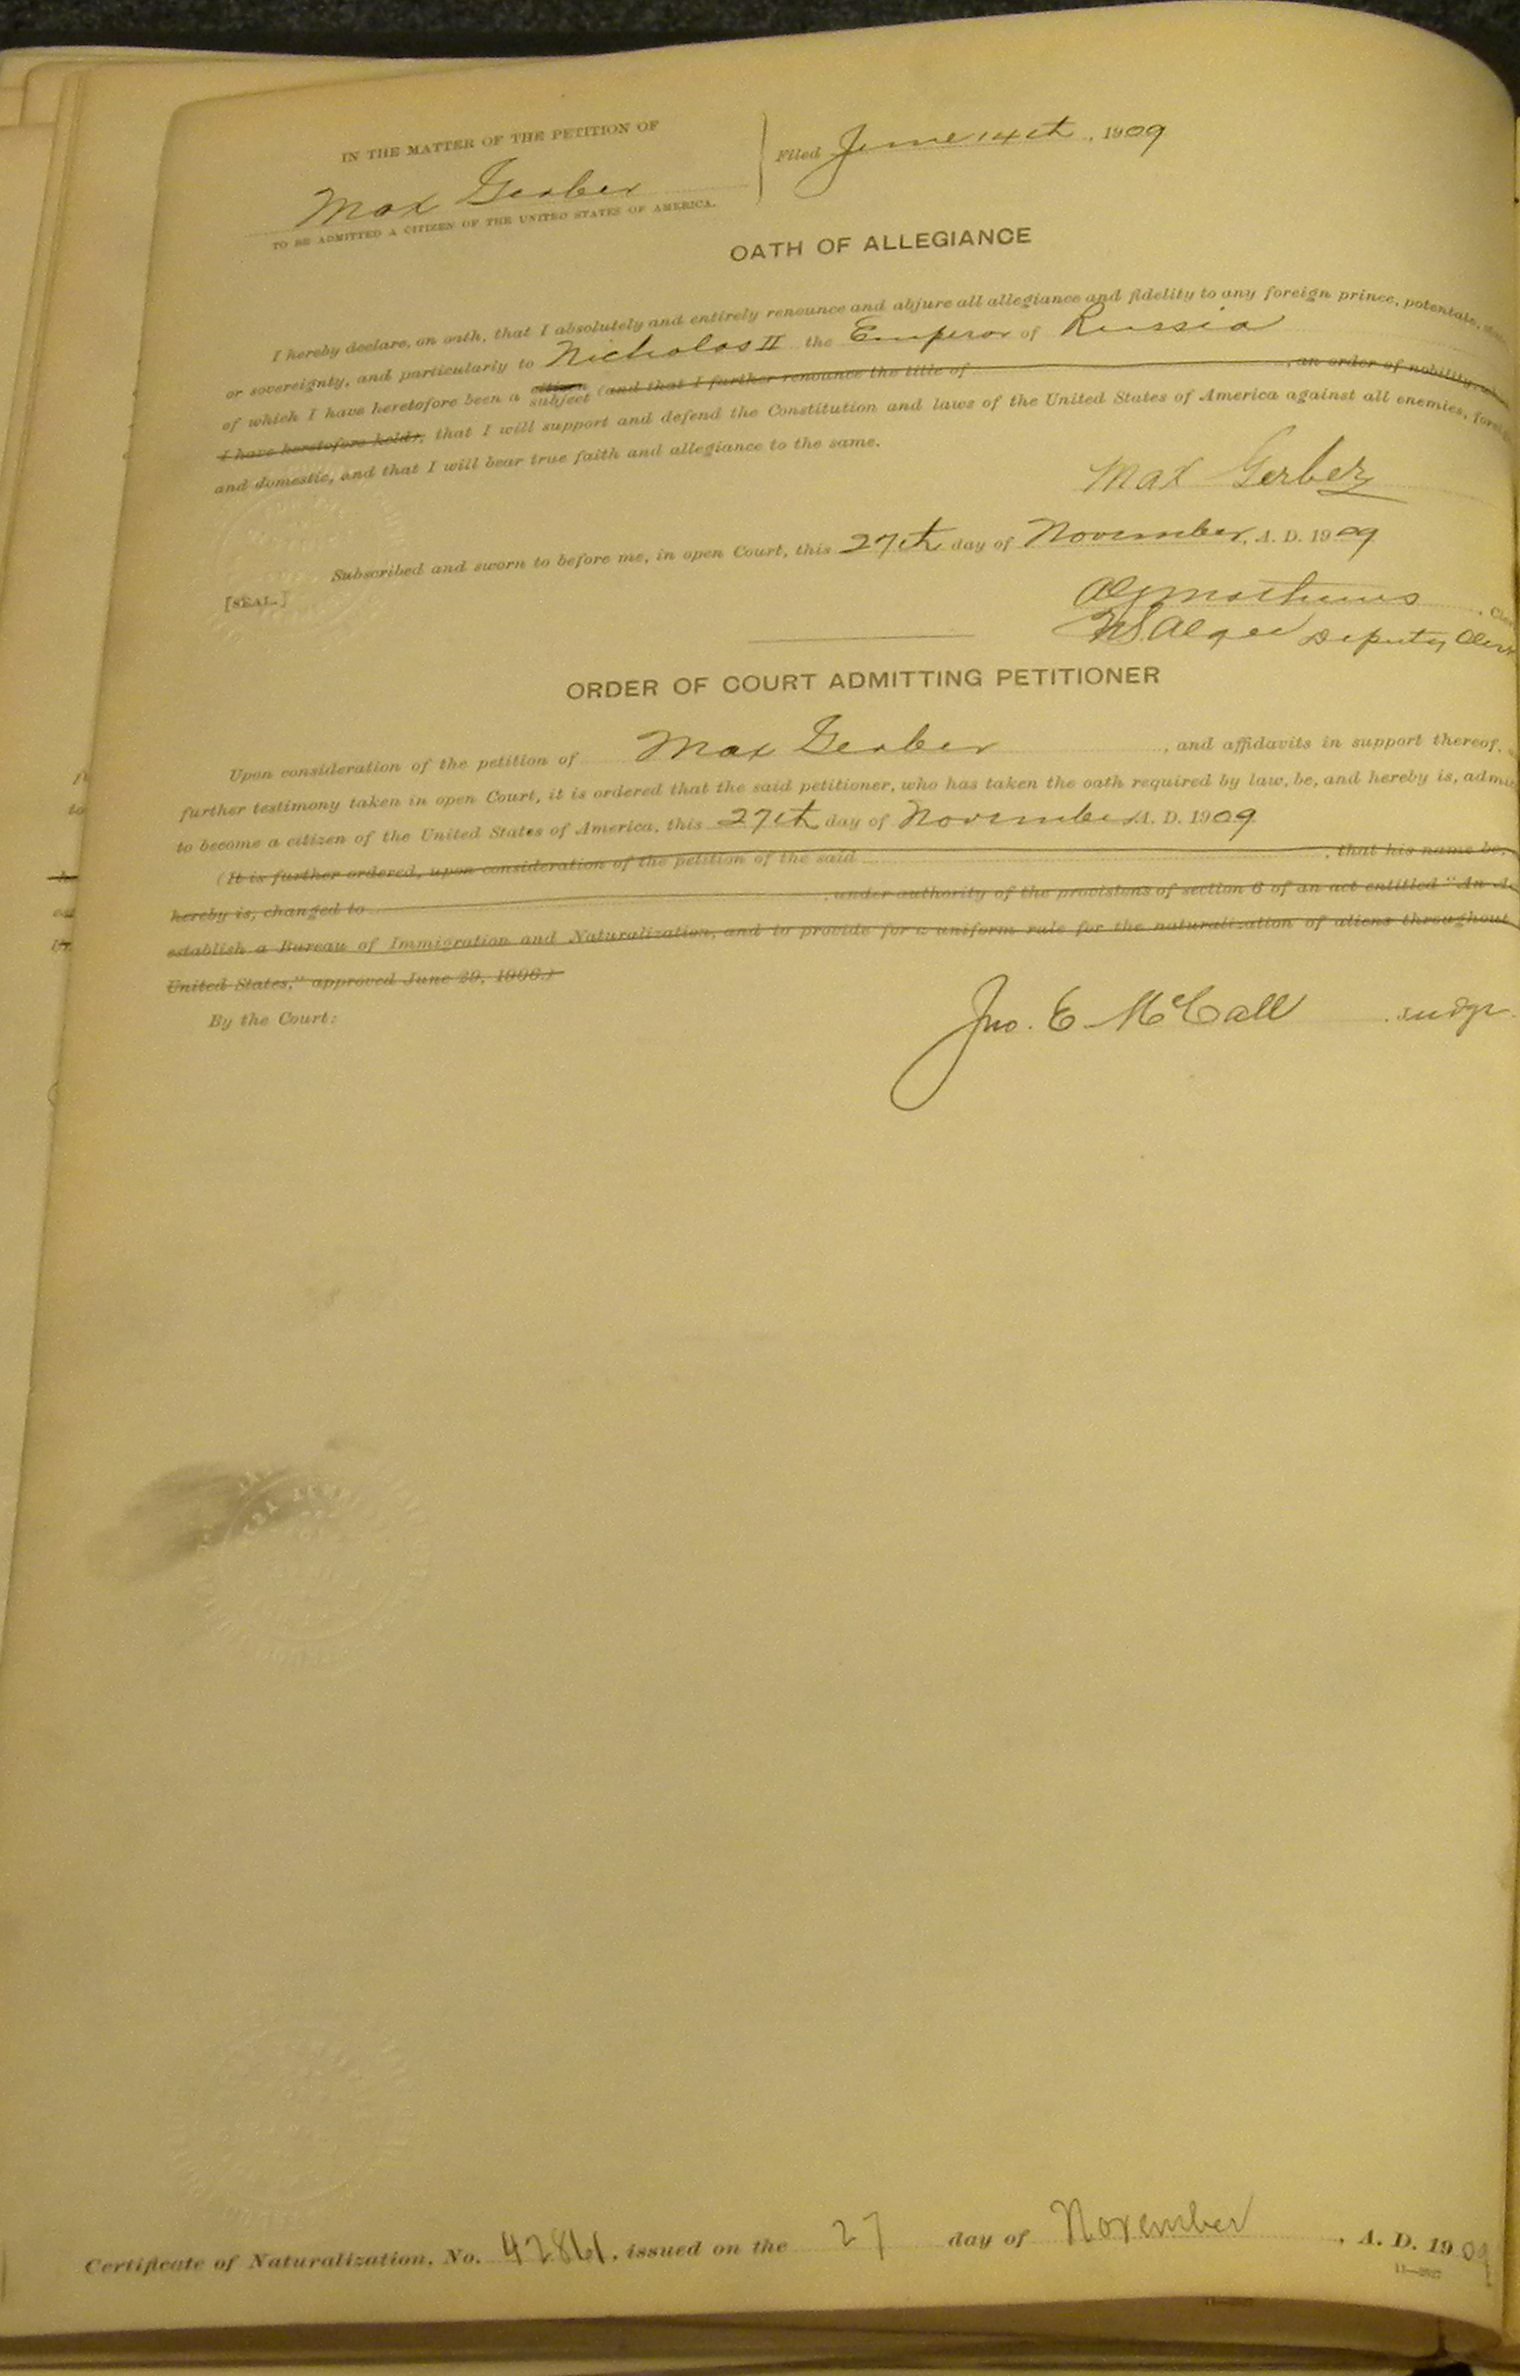 IN THE MATTER OF THE PETITION OF
Max Gerber
TO BE ADMITTED A CITIZEN OF THE UNITED STATES OF AMERICA.
Filed June 14th, 1909
OATH OF ALLEGIANCE
I hereby declare, on oath, that I absolutely and entirely renounce and abjure all allegiance and fidelity to any foreign prince, potentate,
or sovereignty, and particularly to Nicholas II the Emperor of Russia
of which I have heretofore been a citizen subject (and that I further renounce the title of , an order of nobility,
I have heretofore held), that I will support and defend the Constitution and laws of the United States of America against all enemies,
and domestic, and that I will bear true faith and allegiance to the same.
Max Gerber
Subscribed and sworn to before me, in open Court, this 27th day of November, A. D. 1909
[SEAL.]
Mathews
Algee Deputy Clerk
ORDER OF COURT ADMITTING PETITIONER
Upon consideration of the petition of Max Gerber, and affidavits in support thereof,
further testimony taken in open Court, it is ordered that the said petitioner, who has taken the oath required by law, be, and hereby is,
to become a citizen of the United States of America, this 27th day of November A. D. 1909
(It is further ordered, upon consideration of the petition of the said , that his name be,
hereby is, changed to , under authority of the provisions of section 6 of an act entitled "An
establish a Bureau of Immigration and Naturalization, and to provide for a uniform rule for the naturalization of aliens throughout
United States," approved June 29, 1906.)
By the Court:
Jno. E. McCall Judge
Certificate of Naturalization, No. , issued on the 27 day of November, A. D. 1909